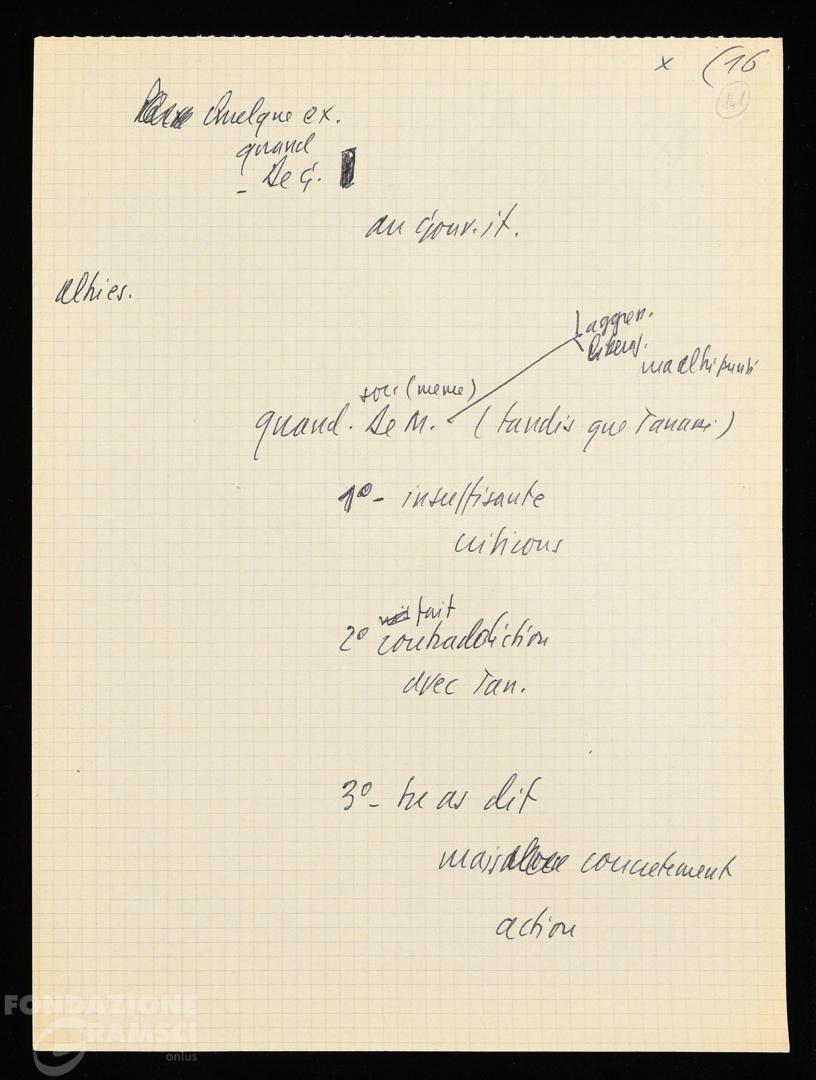 x (16
141
Quelque ex.
quand
- De G.
au Gouv. it.
altries.
aggres.
liberaz.
ma altri punti
son (meme)
quand. De M. (tandis que Tanassi)
1º - insuffisante
criticons
fait
2º contraddiction
avec Tan.
3º - tu as dit
mais concretement
action
FONDAZIONE
GRAMSCI
onlus